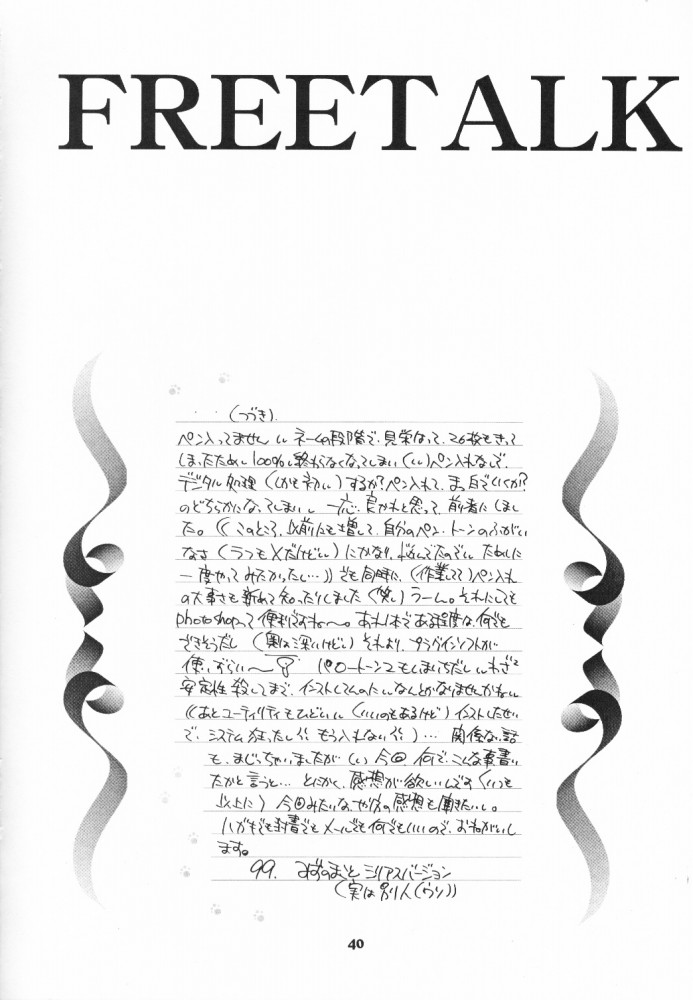 FREETALK
(つづき).
ペン入ってません いい ネームの段階で、見栄はって、26枚もきって
しまったために100%終わらなくなってしまい(いい)ペン入れなしで、
デジタル処理(しかも初い)するか?ペン入れて、まっ白でいくか?
のどちらかになってしまい、一応、良かれと思って、前者にしまし
た。((このところ、以前にも増して、自分のペン・トーンのふがい
なさ(うつもメだけどい)にかなり、悩んでたのでい ために
一度やってみたかったし…))でも同時に、(作業して)ペン入れ
の大事さも新めて知ったりしました(笑い)うーん。それにしても
photoshopって便利ですね〜。あれ1本である程度は何でも
できそうだし(奥は深いけどい)それより、プラグインソフトが
使いづらい〜
安定性殺してまで、インストしてんのにいなんとかなりませんかねい
((あとユーティリティもひどいい(いいのもあるけど)インストしたせい
で、システム狂ったし もう入れない)… 関係な話
も、まじっちゃいましたが(い)今回 何で、こんな事書い
たかと言うと… とにかく、感想が欲しいんです(いつも
以上に)今回みたいなやり方の感想も聞きたいし。
ハガキでも封書でもメールでも何でもいいので、おねがいし
ます。
99. みずのまこと シリアスバージョン
(実は別人(ウソ))
40